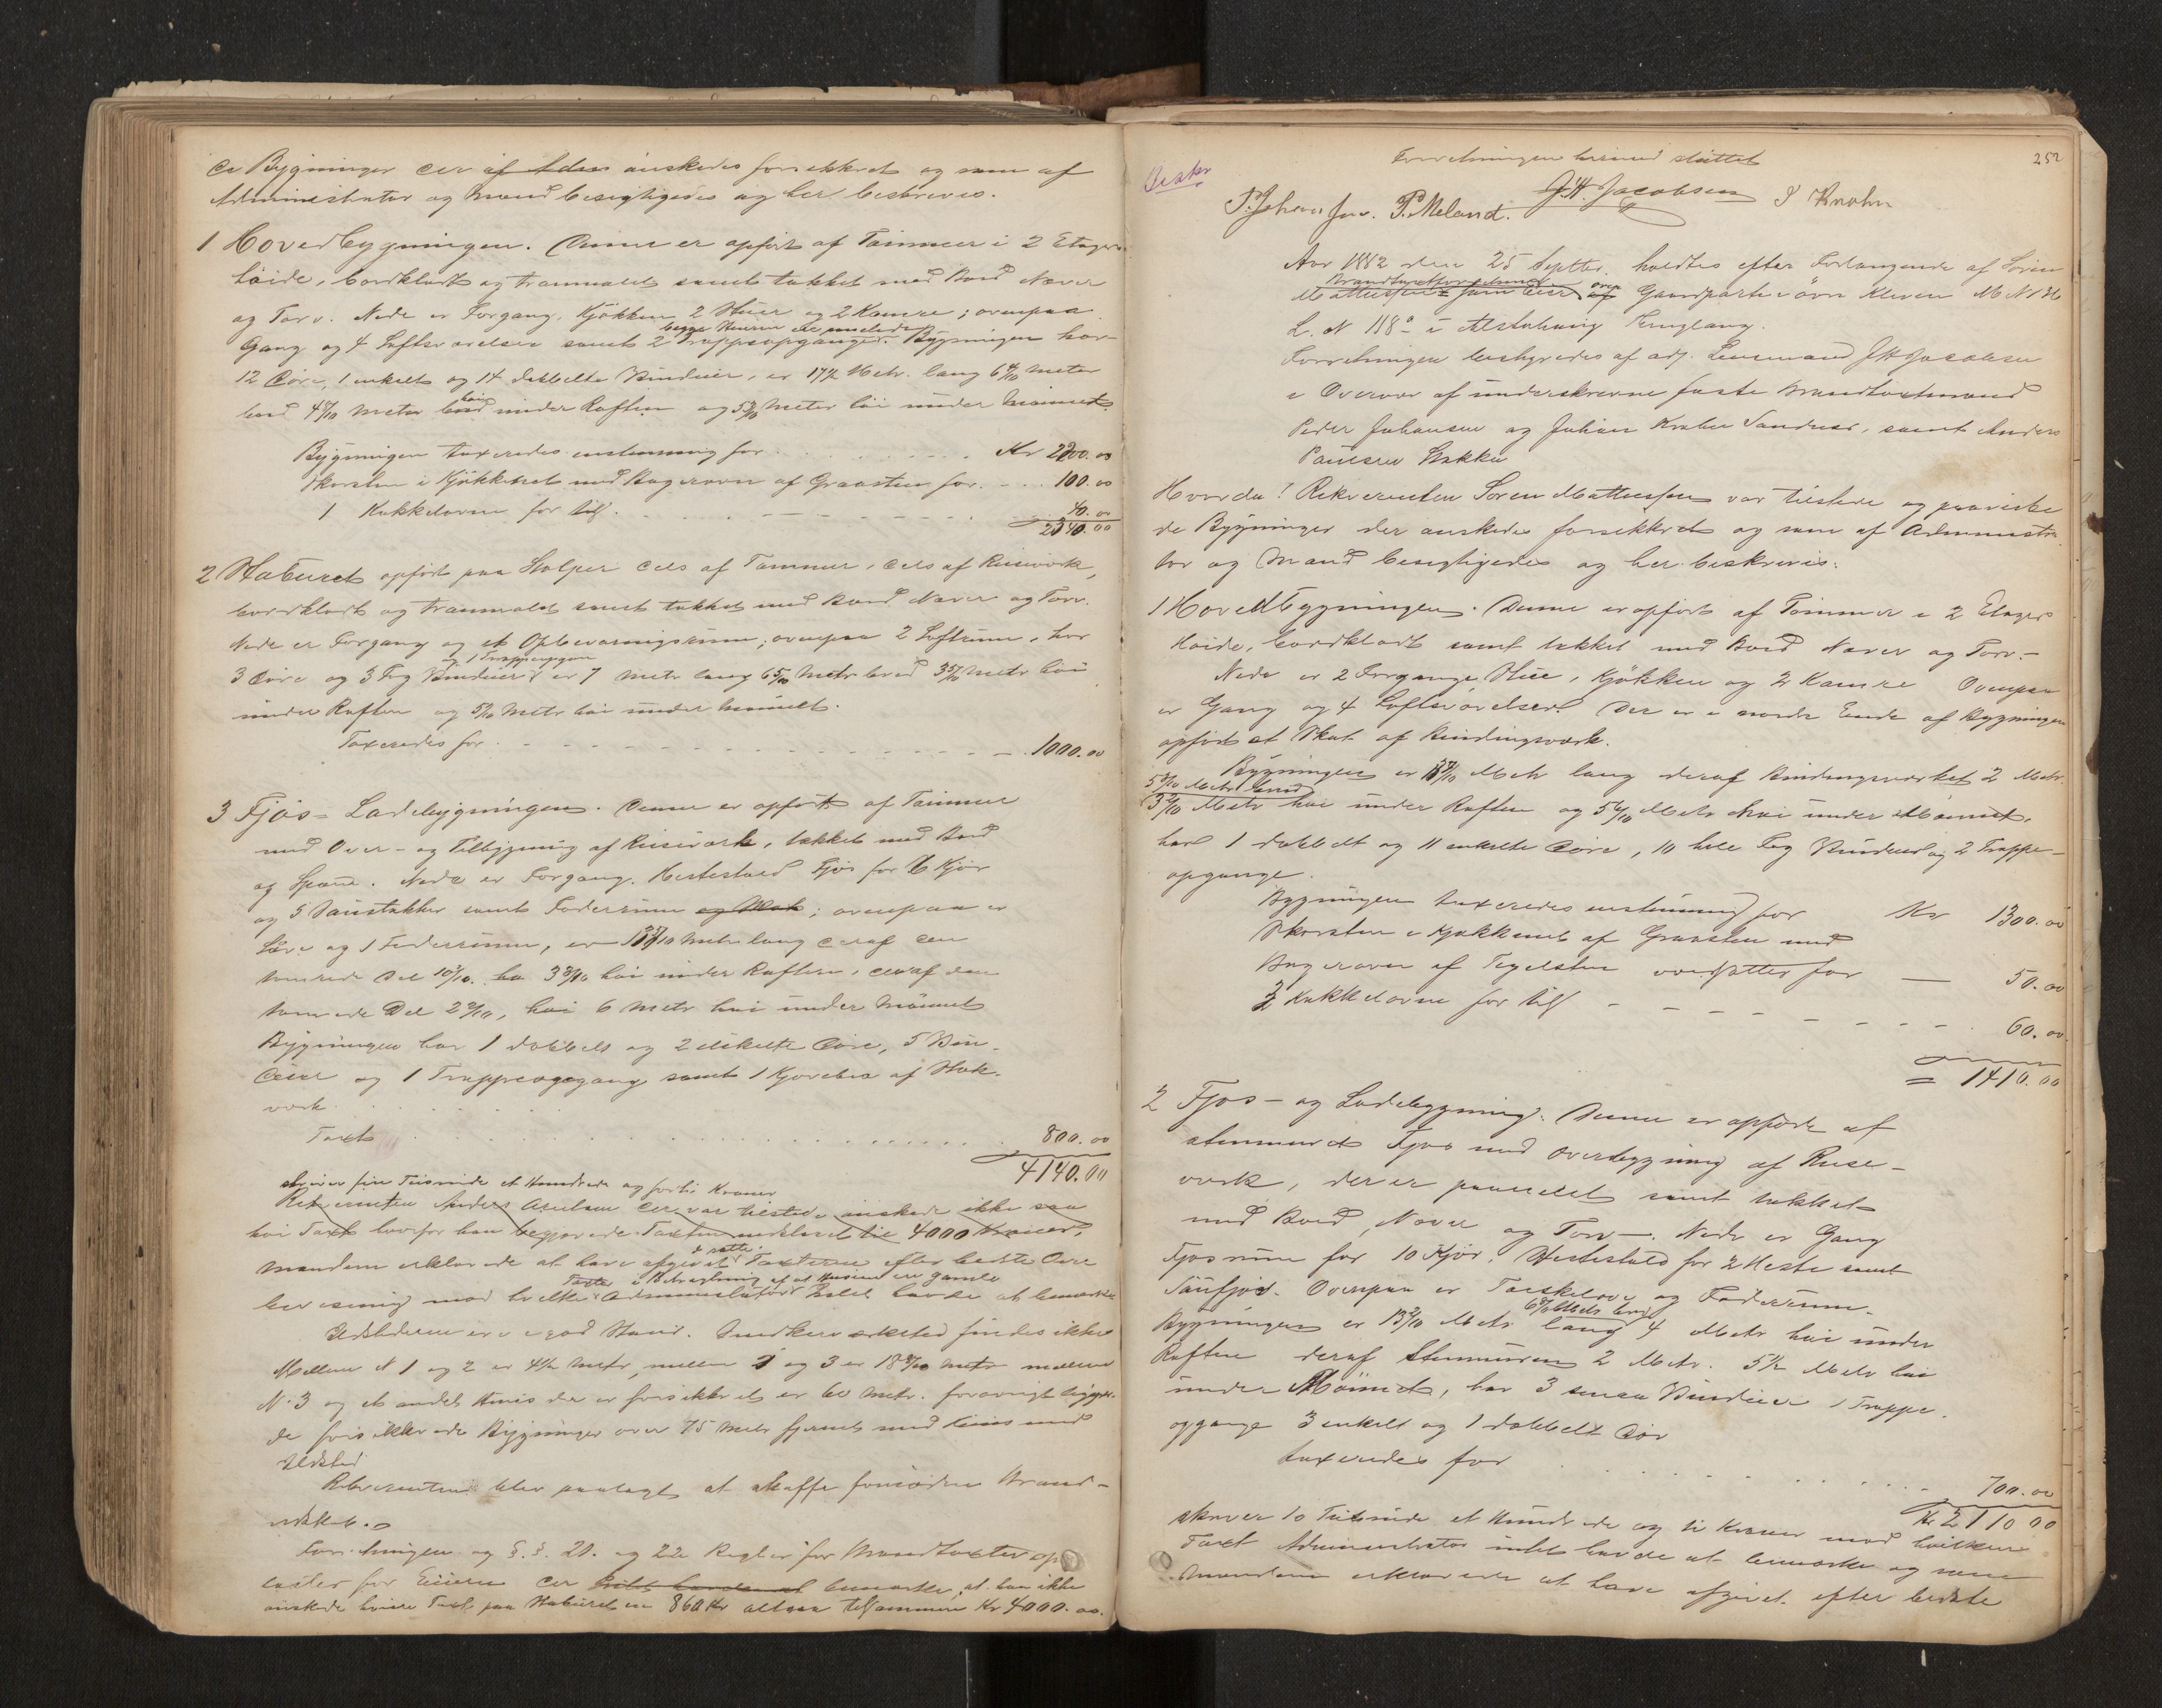 de Bygninger der af Aden ønskedes forsekkret og som af
Administrator og Mænd besigtigedes og her beskreves.
1 Hovedbygningen. Denne er opført af Tømmer i 2 Etagers
høide, bordklædt og tranmalet samt tækket med Bord Næver
og Torv. Nede er Forgang, Kjökken 2 Stuer og 2 Kamre; ovenpaa
Gang og 4 Loftsværelser samt 2 Trappeopganger. Bygningen har
12 Döre, 1 enkelt og 14 dobbelte Vinduer, er 17½ Metr. lang 6 4/10 meter
bred 4 9/10 meter høi under Raften og 5 9/10 Meter höi under Mønnet.
Bygningen taxeredes enstemmig for . . . Kr 2200.00
Skorsten i Kjökkenet med Bagerovn af Graasten for . . . 100.00
1 Kakkelovn for tilf . . . 40.00
2340.00
2 Staburet opført paa Stolper dels af Tømmer, dels af Reisværk,
bordklædt og tranmalet samt tækket med Bord Næver og Torv.
Nede er Forgang og et Opbevaringsrum; ovenpaa 2 Loftrum, har
og 1 Trappeopgan
3 Döre og 3 Fag Vinduer er 7 Metr lang 6 5/10 Metr bred 3 5/10 Metr höi
under Raften og 5 /10 Metr høi under Mønnet.
Taxeredes for . . . 1000.00
3 Fjøs- Ladebygningen. Denne er opført af Tømmer
med Over- og Tilbygning af Reisværk, tækket med Bord
og Spaan. Nede er Forgang. Hestestald Fjøs for 6 Kjør
og 5 Saustakker samt Foderrum og Skot; ovenpaa er
Löve og 1 Foderrum, er 13 /10 Metr lang deraf den
tømrede Del 10 /10. 3 8/10 høi under Raften, deraf den
tømrede Del 2 9/10, höi 6 Metr høi under Mønnet
Bygningen har 1 dobbelt og 2 enkelte Döre, 5 Vin-
duer og 1 Trappeopgang samt 1 Kjørebro af Stok-
værk . . .
Taxt . . . 800.00
4140.00
skriver fire Tusinde et Hundrede og forti Kroner
Rekvirenten Anders der var tilstede ønskede ikke saa
høi Taxt hvorfor han begjærede Taxten nedsat til 4000 Kroner,
Mændene erklærede at have afgivet Taxterne efter bedste Over
bevisning mod hvilke Taxter i Betragtning af at Husene er gamle Administrator Intet havde at bemærke
Ildstederne er i god Stand. Snedkerværksted findes ikke
Mellem N 1 og 2 er 4½ Metr, mellem 1 og 3 er 18 /10 Metr mellem
N. 3 og et andet Huus der er forsikkret er 60 Metr. forøvrigt ligger
de forsikkrede Bygninger over 75 Metr fjernet med Huus med
Ildsted
Rekvirenten blev paalagt at skaffe fornøden Brand-
redskab.
Forretningen og §.§. 21. og 22 Regler for Brandtaxter op-
læstes for Eieren der Intet havde at bemærke, at han ikke
ønskede høiere Taxt paa Staburet en 860 Kr altsaa tilsammen Kr 4000.00.
252
Forretningen hermed sluttet
P. Johansen. P. Meland. J. H. Jacobsen J Krohn
Aar 1882 den 25 Septbr. holdtes efter Forlangende af Søren
Brandtaxtforretning over
Mattiesen som Eier af Gaardparten övre Kleven M N 36
L. N 118a i Alstahaug Tinglaug.
Forretningen bestyredes af adj. Lensmand J H Jacobsen
i Overvær af underskrevne faste Brandtaxtmænd
Peder Johansen og Johan Krohn Sandnes, samt Anders
Paulsen Stokke
Hvorda! Rekvirenten Søren Mattiesen var tilstede og paaviste
de Bygninger der ønskedes forsekkret og som af Administra
tor og Mænd besigtigedes og her beskreves:
1 Hovedbygningen. Denne er opført af Tømmer i 2 Etagers
Høide, bordklædt samt tækket med Bord Næver og Torv.-
Nede er 2 Forgange, Stue, Kjökken og 2 Kamre Ovenpaa
er Gang og 4 Loftsværelser. Der er i nordre Ende af Bygningen
opført et Skot af Bindingsværk.
Bygningen er 15 /10 Metr lang deraf Bindingsværket 2 Metr.
5 8/10 Metr bred
3 9/10 Metr høi under Raften og 5 6/10 Metr høi under Mønnet,
har 1 dobbelt og 11 enkelte Döre, 10 hele Fag Vinduer og 2 Trappe-
opgange.
Bygningen taxeredes enstemmig for Kr 1300.00
Skorsten i Kjøkkenet af Graasten med
Bagerovn af Teglsten ansættes for — 50.00
3 Kakkelovne for tilf - - - 60.00
= 1410.00
2 Fjøs- og Ladebygning. Denne er opførte af
stenmuret Fjøs med Overbygning af Reise-
værk, der er panelet samt tækket
med Bord, Næver og Torv —. Nede er Gang
Fjøsrum for 10 Kjør, Hestestald for 2 Heste samt
Saufjøs. Ovenpaa er Tærskelove og Foderrum.
Bygningen er 13 2/10 Metr lang 6 9/10 Metr bred 4 Metr høi under
Raften deraf Stenmuren 2 Metr. 5½ Metr høi
under Mønnet, har 3 smaa Vinduer 1 Trappe-
opgange 3 enkelt og 1 dobbelt Dør
taxeredes for . . . 700.00
Kr 2110 00
skriver to Tusinde et Hundrede og ti Kroner mod hvilken
Taxt Administrator intet havde at bemærke og som
Mændene erklærede at have afgivet efter bedste